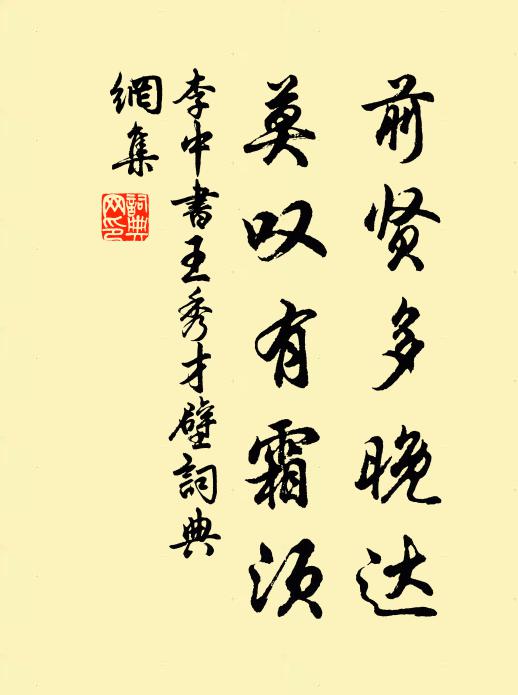 前贤多晚达
莫叹有霜须
李中書王秀才壁詞典
網集
詞典
网印